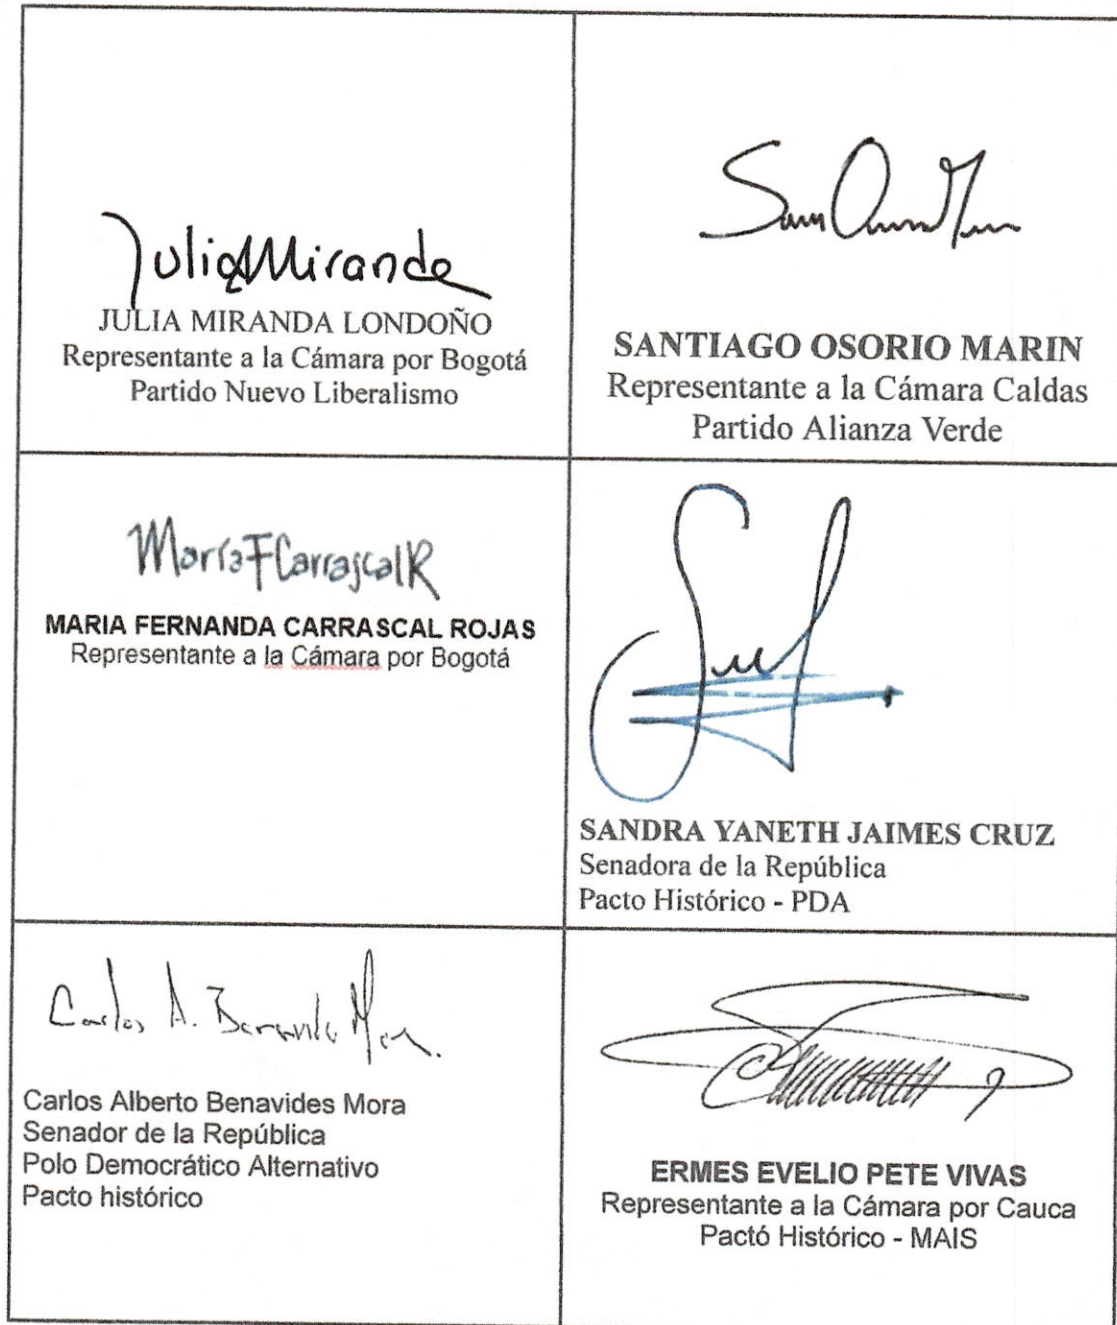 JuliaMiranda
JULIA MIRANDA LONDOÑO
Representante a la Cámara por Bogotá
Partido Nuevo Liberalismo
SANTIAGO OSORIO MARIN
Representante a la Cámara Caldas
Partido Alianza Verde
MaríaFCarrascalR
MARIA FERNANDA CARRASCAL ROJAS
Representante a la Cámara por Bogotá
SANDRA YANETH JAIMES CRUZ
Senadora de la República
Pacto Histórico - PDA
Carlos A.
Carlos Alberto Benavides Mora
Senador de la República
Polo Democrático Alternativo
Pacto histórico
ERMES EVELIO PETE VIVAS
Representante a la Cámara por Cauca
Pactó Histórico - MAIS